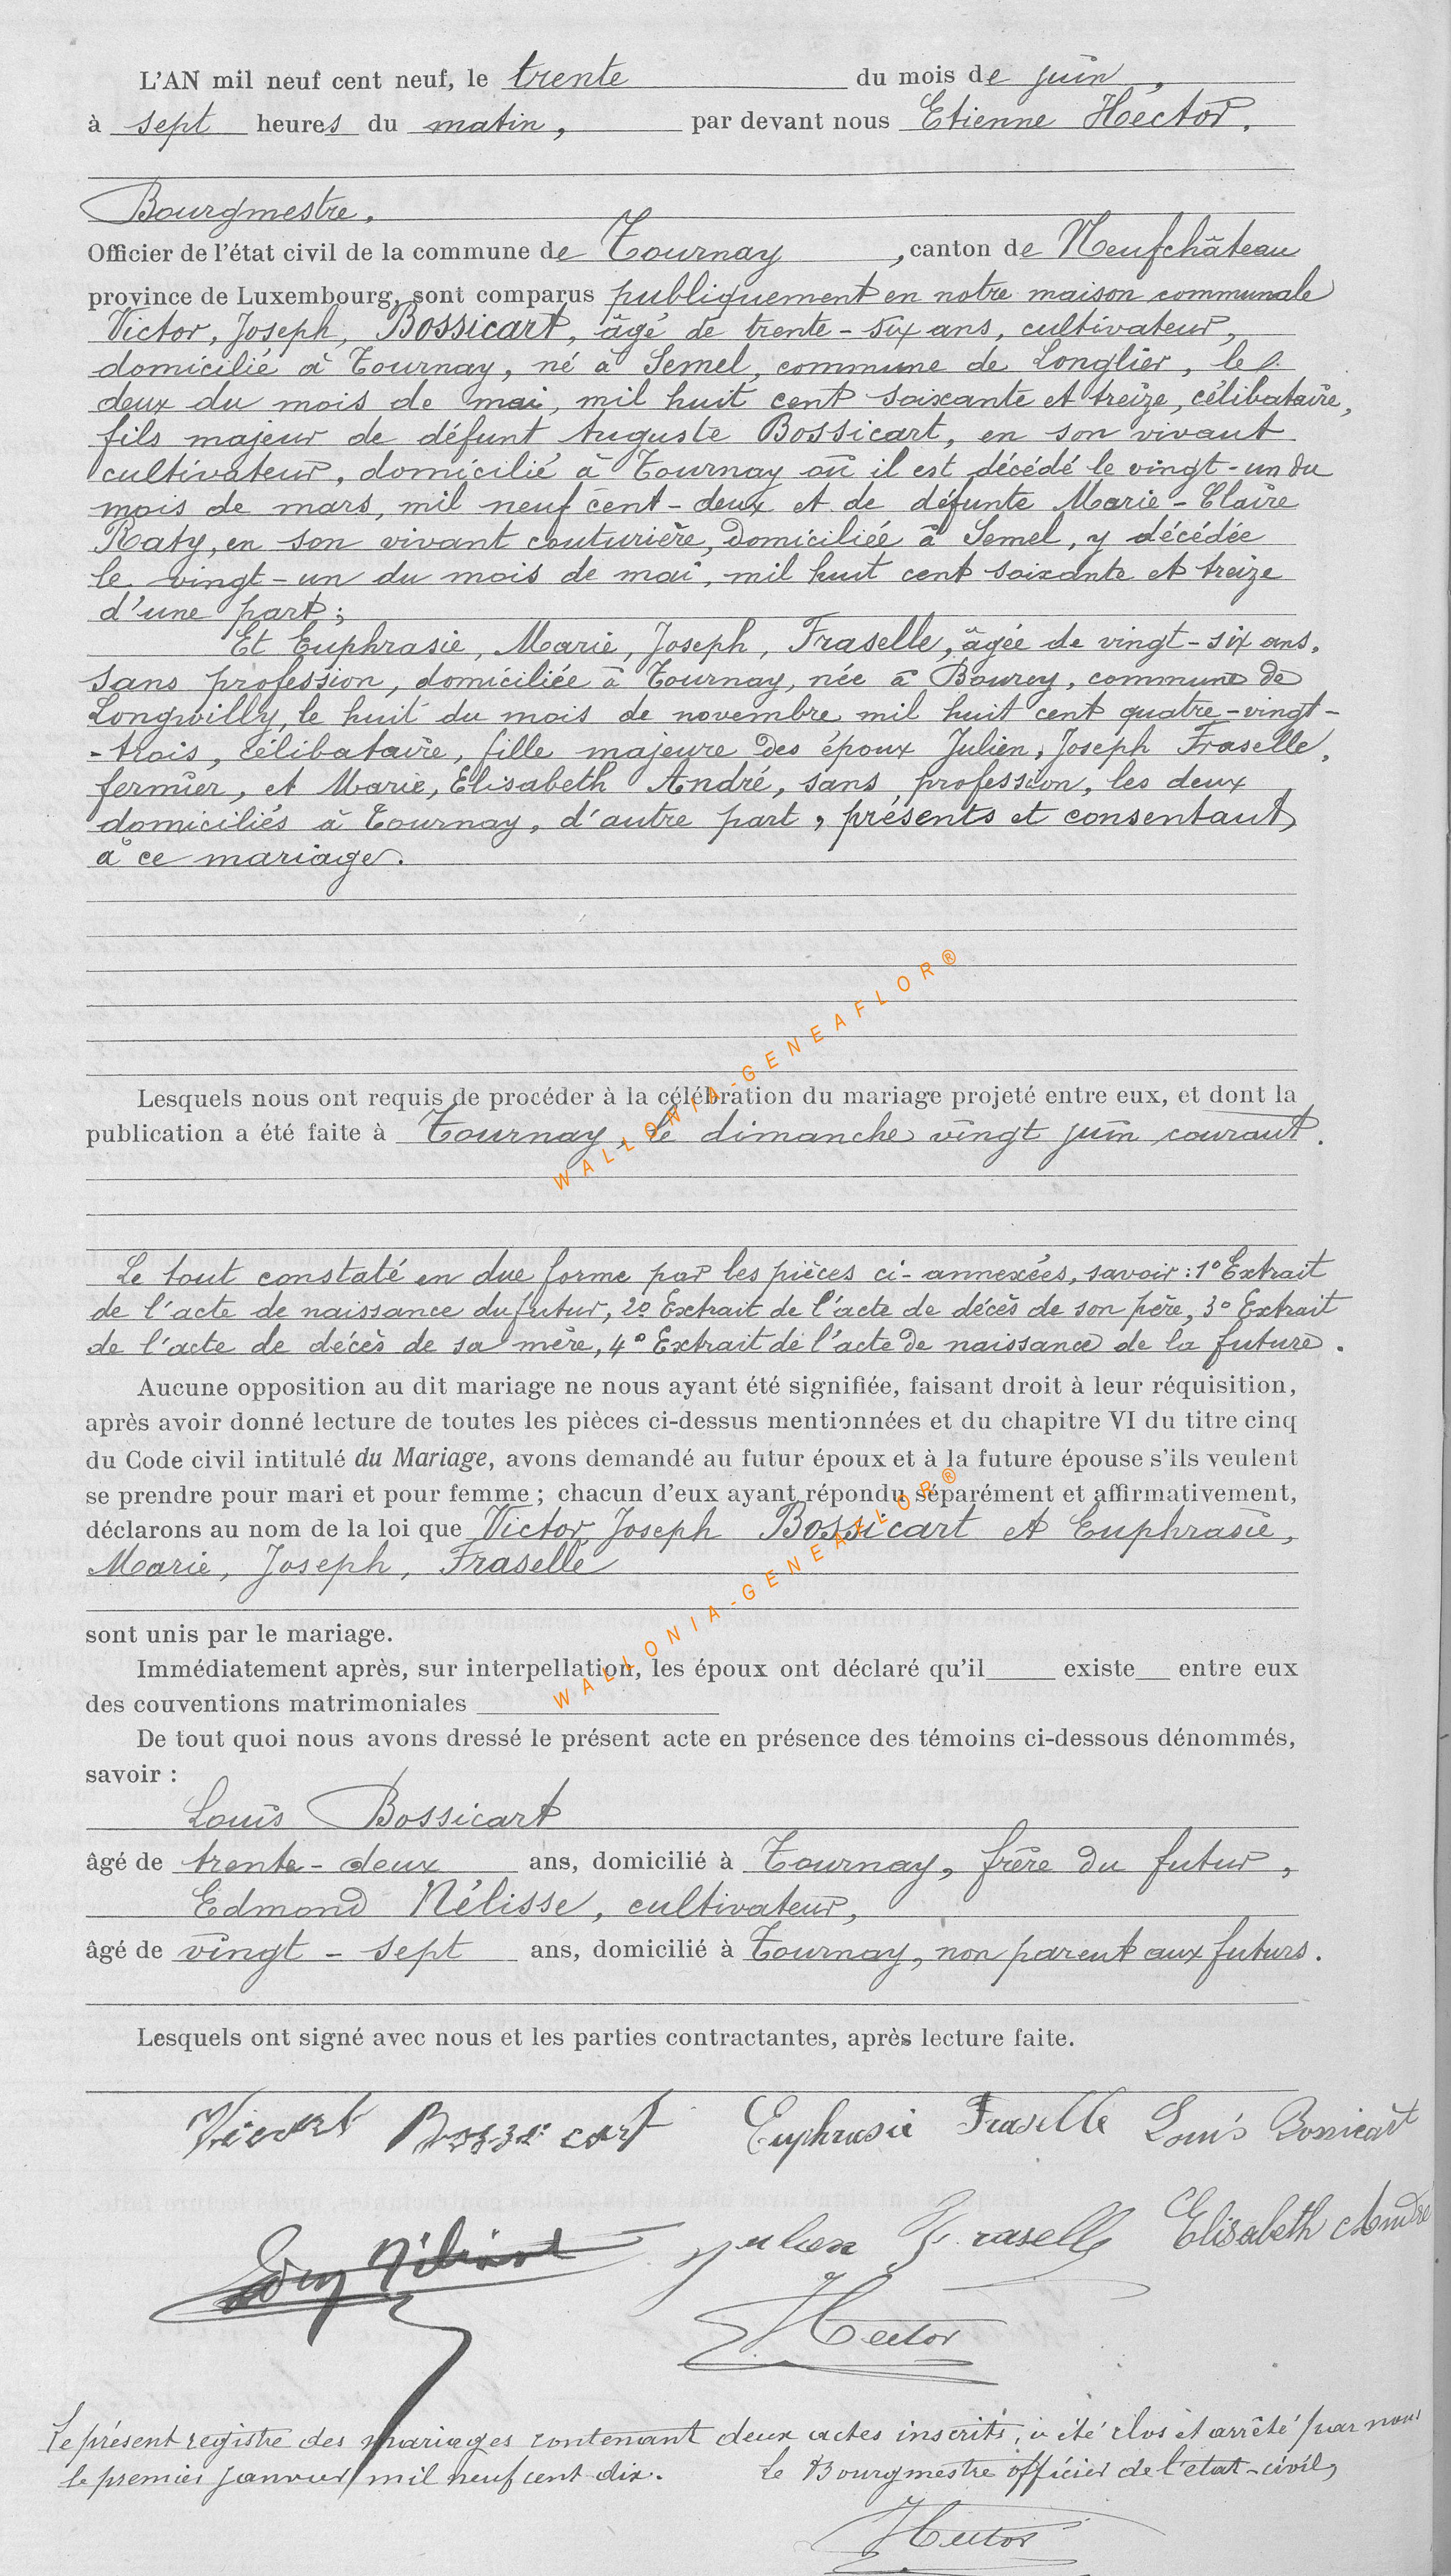 L'AN mil neuf cent neuf, le trente du mois de juin,
à sept heures du matin, par devant nous Etienne Hector,
Bourgmestre,
Officier de l'état civil de la commune de Tournay, canton de Neufchâteau
province de Luxembourg, sont comparus publiquement en notre maison communale
Victor, Joseph, Bossicart, âgé de trente-six ans, cultivateur,
domicilié à Tournay, né à Semel, commune de Longlier, le
deux du mois de mai, mil huit cent soixante et treize, célibataire,
fils majeur de défunt Auguste Bossicart, en son vivant
cultivateur, domicilié à Tournay où il est décédé le vingt-un du
mois de mars, mil neuf cent-deux et de défunte Marie-Claire
Raty, en son vivant couturière, domiciliée à Semel, y décédée
le vingt-un du mois de mai, mil huit cent soixante et treize
d'une part;
Et Euphrasie, Marie, Joseph, Fraselle, âgée de vingt-six ans,
sans profession, domiciliée à Tournay, née à Bourcy, commune de
Longwilly, le huit du mois de novembre mil huit cent quatre-vingt-
-trois, célibataire, fille majeure des époux Julien, Joseph Fraselle,
fermier, et Marie, Elisabeth André, sans profession, les deux
domiciliés à Tournay, d'autre part, présents et consentant
à ce mariage.
Lesquels nous ont requis de procéder à la célébration du mariage projeté entre eux, et dont la
publication a été faite à Tournay, le dimanche vingt juin courant.
Le tout constaté en due forme par les pièces ci-annexées, savoir: 1° Extrait
de l'acte de naissance du futur, 2° Extrait de l'acte de décès de son père, 3° Extrait
de l'acte de décès de sa mère, 4° Extrait de l'acte de naissance de la future.
Aucune opposition au dit mariage ne nous ayant été signifiée, faisant droit à leur réquisition,
après avoir donné lecture de toutes les pièces ci-dessus mentionnées et du chapitre VI du titre cinq
du Code civil intitulé du Mariage, avons demandé au futur époux et à la future épouse s'ils veulent
se prendre pour mari et pour femme ; chacun d'eux ayant répondu séparément et affirmativement,
déclarons au nom de la loi que Victor, Joseph Bossicart et Euphrasie,
Marie, Joseph, Fraselle
sont unis par le mariage.
Immédiatement après, sur interpellation, les époux ont déclaré qu'il existe entre eux
des couventions matrimoniales
De tout quoi nous avons dressé le présent acte en présence des témoins ci-dessous dénommés,
savoir :
Louis Bossicart
âgé de trente-deux ans, domicilié à Tournay, frère du futur,
Edmond Nélisse, cultivateur,
âgé de vingt-sept ans, domicilié à Tournay, non parent aux futurs.
Lesquels ont signé avec nous et les parties contractantes, après lecture faite.
Bossicart Euphrasie Fraselle Louis Bossicart
Julien Fraselle Elisabeth André
Hector
Le présent registre des mariages contenant deux actes inscrits, a été clos et arrêté par nous
le premier janvier mil neuf cent dix. Le Bourgmestre officier de l'état-civil,
Hector
WALLONIA-GENEAFLOR®
WALLONIA-GENEAFLOR®